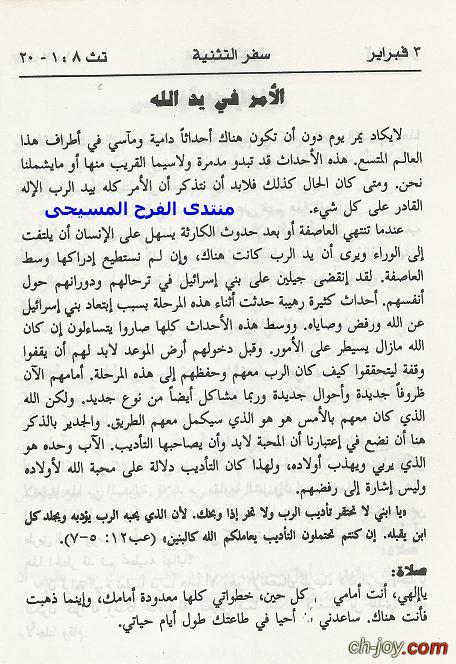 ٣ فبراير سفر التثنية تث ٨ : ١ - ٢٠
الأمر في يد الله
لايكاد يمر يوم دون أن تكون هناك أحداثاً دامية ومآسي في أطراف هذا
العالم المتسع. هذه الأحداث قد تبدو مدمرة ولاسيما القريب منها أو مايشملنا
نحن. ومتى كان الحال كذلك فلابد أن نتذكر أن الأمر كله بيد الرب الإله
القادر على كل شيء.
منتدى الفرح المسيحى
عندما تنتهي العاصفة أو بعد حدوث الكارثة يسهل على الإنسان أن يلتفت
إلى الوراء ويرى أن يد الرب كانت هناك، وإن لم نستطيع إدراكها وسط
العاصفة. لقد إنقضى جيلين على بني إسرائيل في ترحالهم ودورانهم حول
أنفسهم. أحداث كثيرة رهيبة حدثت أثناء هذه المرحلة بسبب إبتعاد بني إسرائيل
عن الله ورفض وصاياه. ووسط هذه الأحداث كلها صاروا يتساءلون إن كان
الله مازال يسيطر على الأمور. وقبل دخولهم أرض الموعد لابد لهم أن يقفوا
وقفة ليتحققوا كيف كان الرب معهم وحفظهم إلى هذه المرحلة. أمامهم الآن
ظروفاً جديدة وأحوال جديدة وربما مشاكل أيضاً من نوع جديد. ولكن الله
الذي كان معهم بالأمس هو هو الذي سيكمل معهم الطريق. والجدير بالذكر
هنا أن نضع في إعتبارنا أن المحبة لابد وأن يصاحبها التأديب. الآب وحده هو
الذي يربي ويهذب أولاده، ولهذا كان التأديب دلالة على محبة الله لأولاده
وليس إشارة إلى رفضهم.
«يا ابني لا تحتقر تأديب الرب ولا تخر إذا وبخك. لأن الذي يحبه الرب يؤدبه ويجلد كل
ابن يقبله. إن كنتم تحتملون التأديب يعاملكم الله كالبنين» (عب١٢: ٥-٧).
صلاة:
ياإلهي، أنت أمامي كل حين، خطواتي كلها معدودة أمامك، وإينما ذهبت
فأنت هناك. ساعدني أحيا في طاعتك طول أيام حياتي.
ch-joy.com